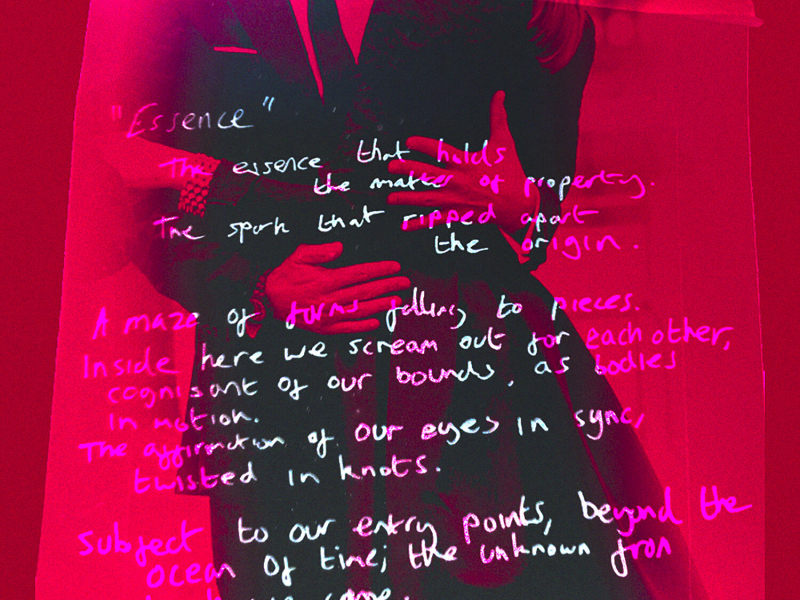 "Essence"
The essence that holds
the matter of property.
The spark that ripped apart
the origin.
A maze of forms falling to pieces.
Inside here we scream out for each other,
cognisant of our bounds, as bodies
in motion.
The affirmation of our eyes in sync,
twisted in knots.
Subject to our entry points, beyond the
ocean of time; the unknown from
we came.